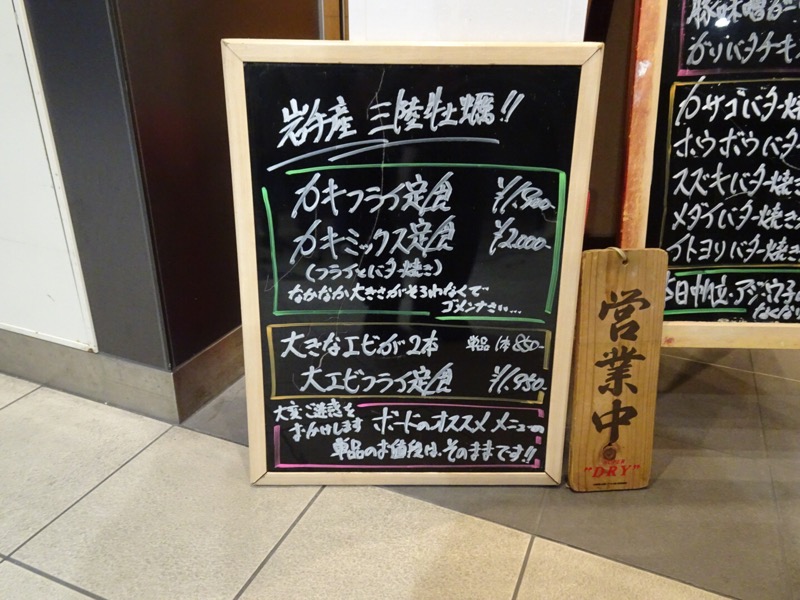 岩手産 三陸牡蠣!!
カキフライ定食 ¥1,900-
カキミックス定食 ¥2,000-
(フライとバター焼き)
なかなか大きさがそろわなくて
ゴメンナさい...
大きなエビが2本 単品 1本 850-
大エビフライ定食 ¥1,950-
大変ご迷惑を
おかけします ボードのオススメメニューの
単品のお値段は、そのままです!!
営業中
"DRY"
豚味噌
カサゴバター焼
ホウボウバター
スズキバター焼き
メダイバター焼き
イトヨリバター焼き